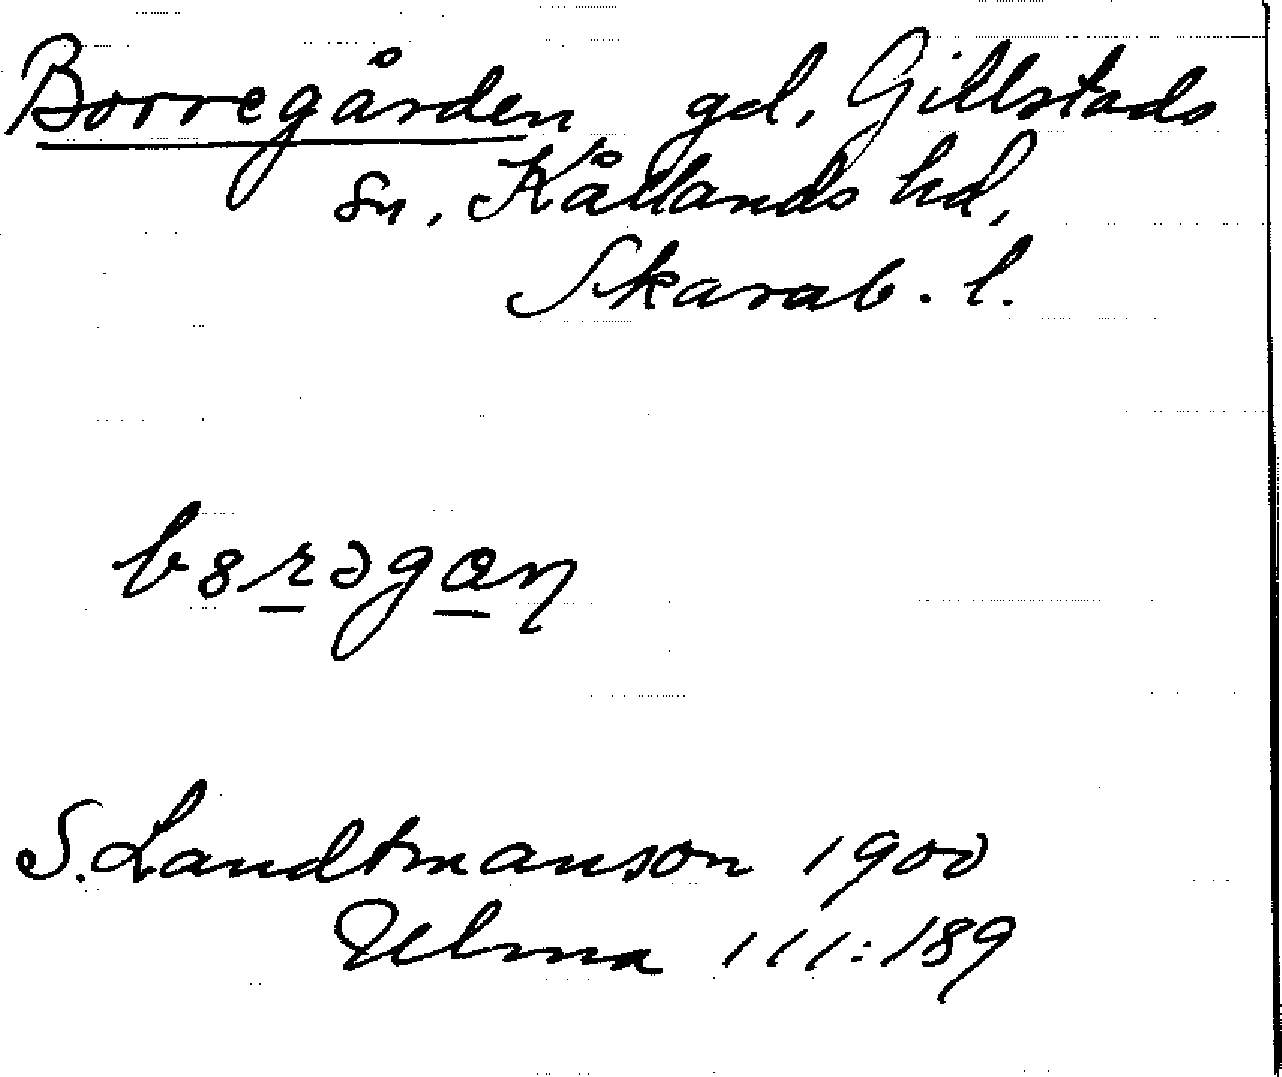 Borregården gd, Gillstads
sn, Kållands hd,
Skarab. l.
b8rəgan
S. Landtmanson 1900
Ulma 111:189